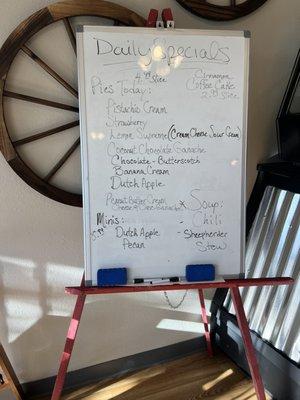 Daily Specials
Pies Today:
4.50 Slice
Pistachio Cream
Strawberry
Lemon Supreme (Cream Cheese Sour Cream)
Coconut Chocolate Ganache
Chocolate - Butterscotch
Banana Cream
Dutch Apple
Peanut Butter Cream
Cheese
Minis:
Dutch Apple
Pecan
Cinnamon
Coffee Cake
Slice
* Soup:
Chili
- Sheepherder
Stew